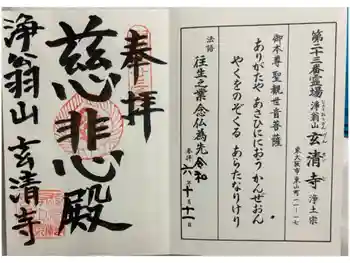 第二十三番霊場 浄翁山 玄清寺 浄土宗
東大阪市東山町一一-一七
御本尊 聖観世音菩薩
ありがたや あさひににおう かんぜおん
やくをのぞくる あらたなりけり
法語
往生之業 念仏為先
令和
参拝 六年十月十一日
奉拝
慈悲殿
浄翁山 玄清寺